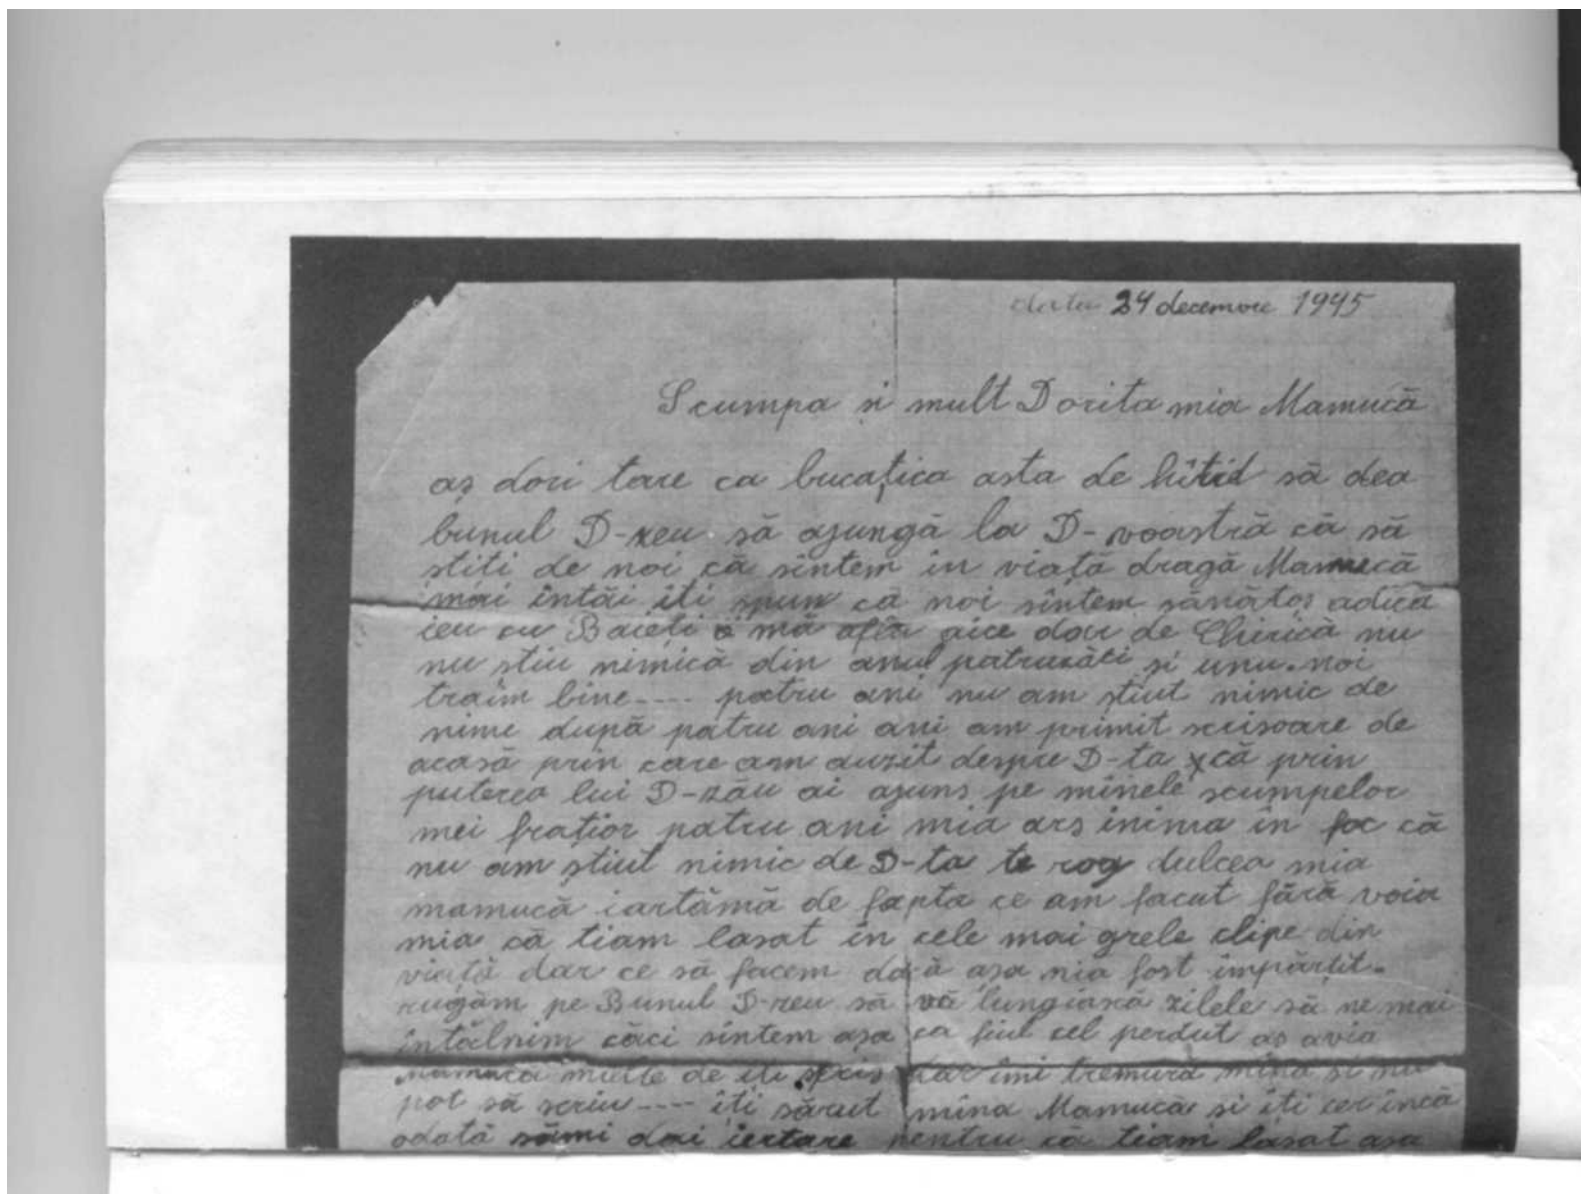 data 24 decemvre 1945
Scumpa si mult Dorita mia Mamucă
aș dori tare ca bucațica asta de hîtid să dea
bunul D-zeu să ajungă la D-voastră că să
stiti de noi că sîntem in viață dragă Mamucă
mai întăi iti spun ca noi sîntem sănătoș adică
ieu cu mă aice dar de Chirică nu
nu stiu nimică din anul patruzăti și unu. noi
traim bine---- patru ani nu am știut nimic de
nime după patru ani ani am primit scrisoare de
acasă prin care am auzit despre D-ta că prin
puterea lui D-zău ai ajuns pe mînele scumpelor
mei frațior patru ani mia ars inima in foc că
nu am știut nimic de D-ta te rog dulcea mia
mamucă iartămă de fapta ce am facut fără voia
mia că tiam lasat in cele mai grele clipe din
viață dar ce să facem dacă așa nia fost împărțit.
rugăm pe Bunul D-zeu să vă lungiască zilele să ne mai
întălnim căci sîntem așa ca fiul cel perdut aș avia
Mamuca multe de iti scris dar imi tremură mîna si nu
pot să scriu---- iti sărut mîna Mamucă si iti cer incă
odată sămi dai iertare pentru că tiam lasat așa